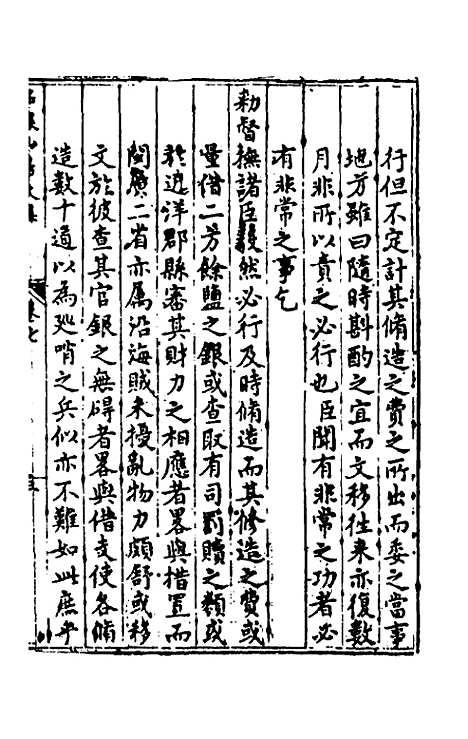 行但不定計其脩造之費之所出而委之當事
地方雖曰隨時斟酌之宜而文移往來亦復數
月非所以責之必行也臣聞有非常之功者必
有非常之事乞
勑督撫諸臣毅然必行及時脩造而其修造之費或
量借二方餘鹽之銀或查取有司罰贖之類或
於邊洋郡縣審其財力之相應者畧與措置而
閩廣二省亦属沿海賊未擾亂物力頗舒或移
文於彼查其官銀之無碍者畧與借支使各脩
造數十艘以為巡哨之兵似亦不難如此庶乎
卷七